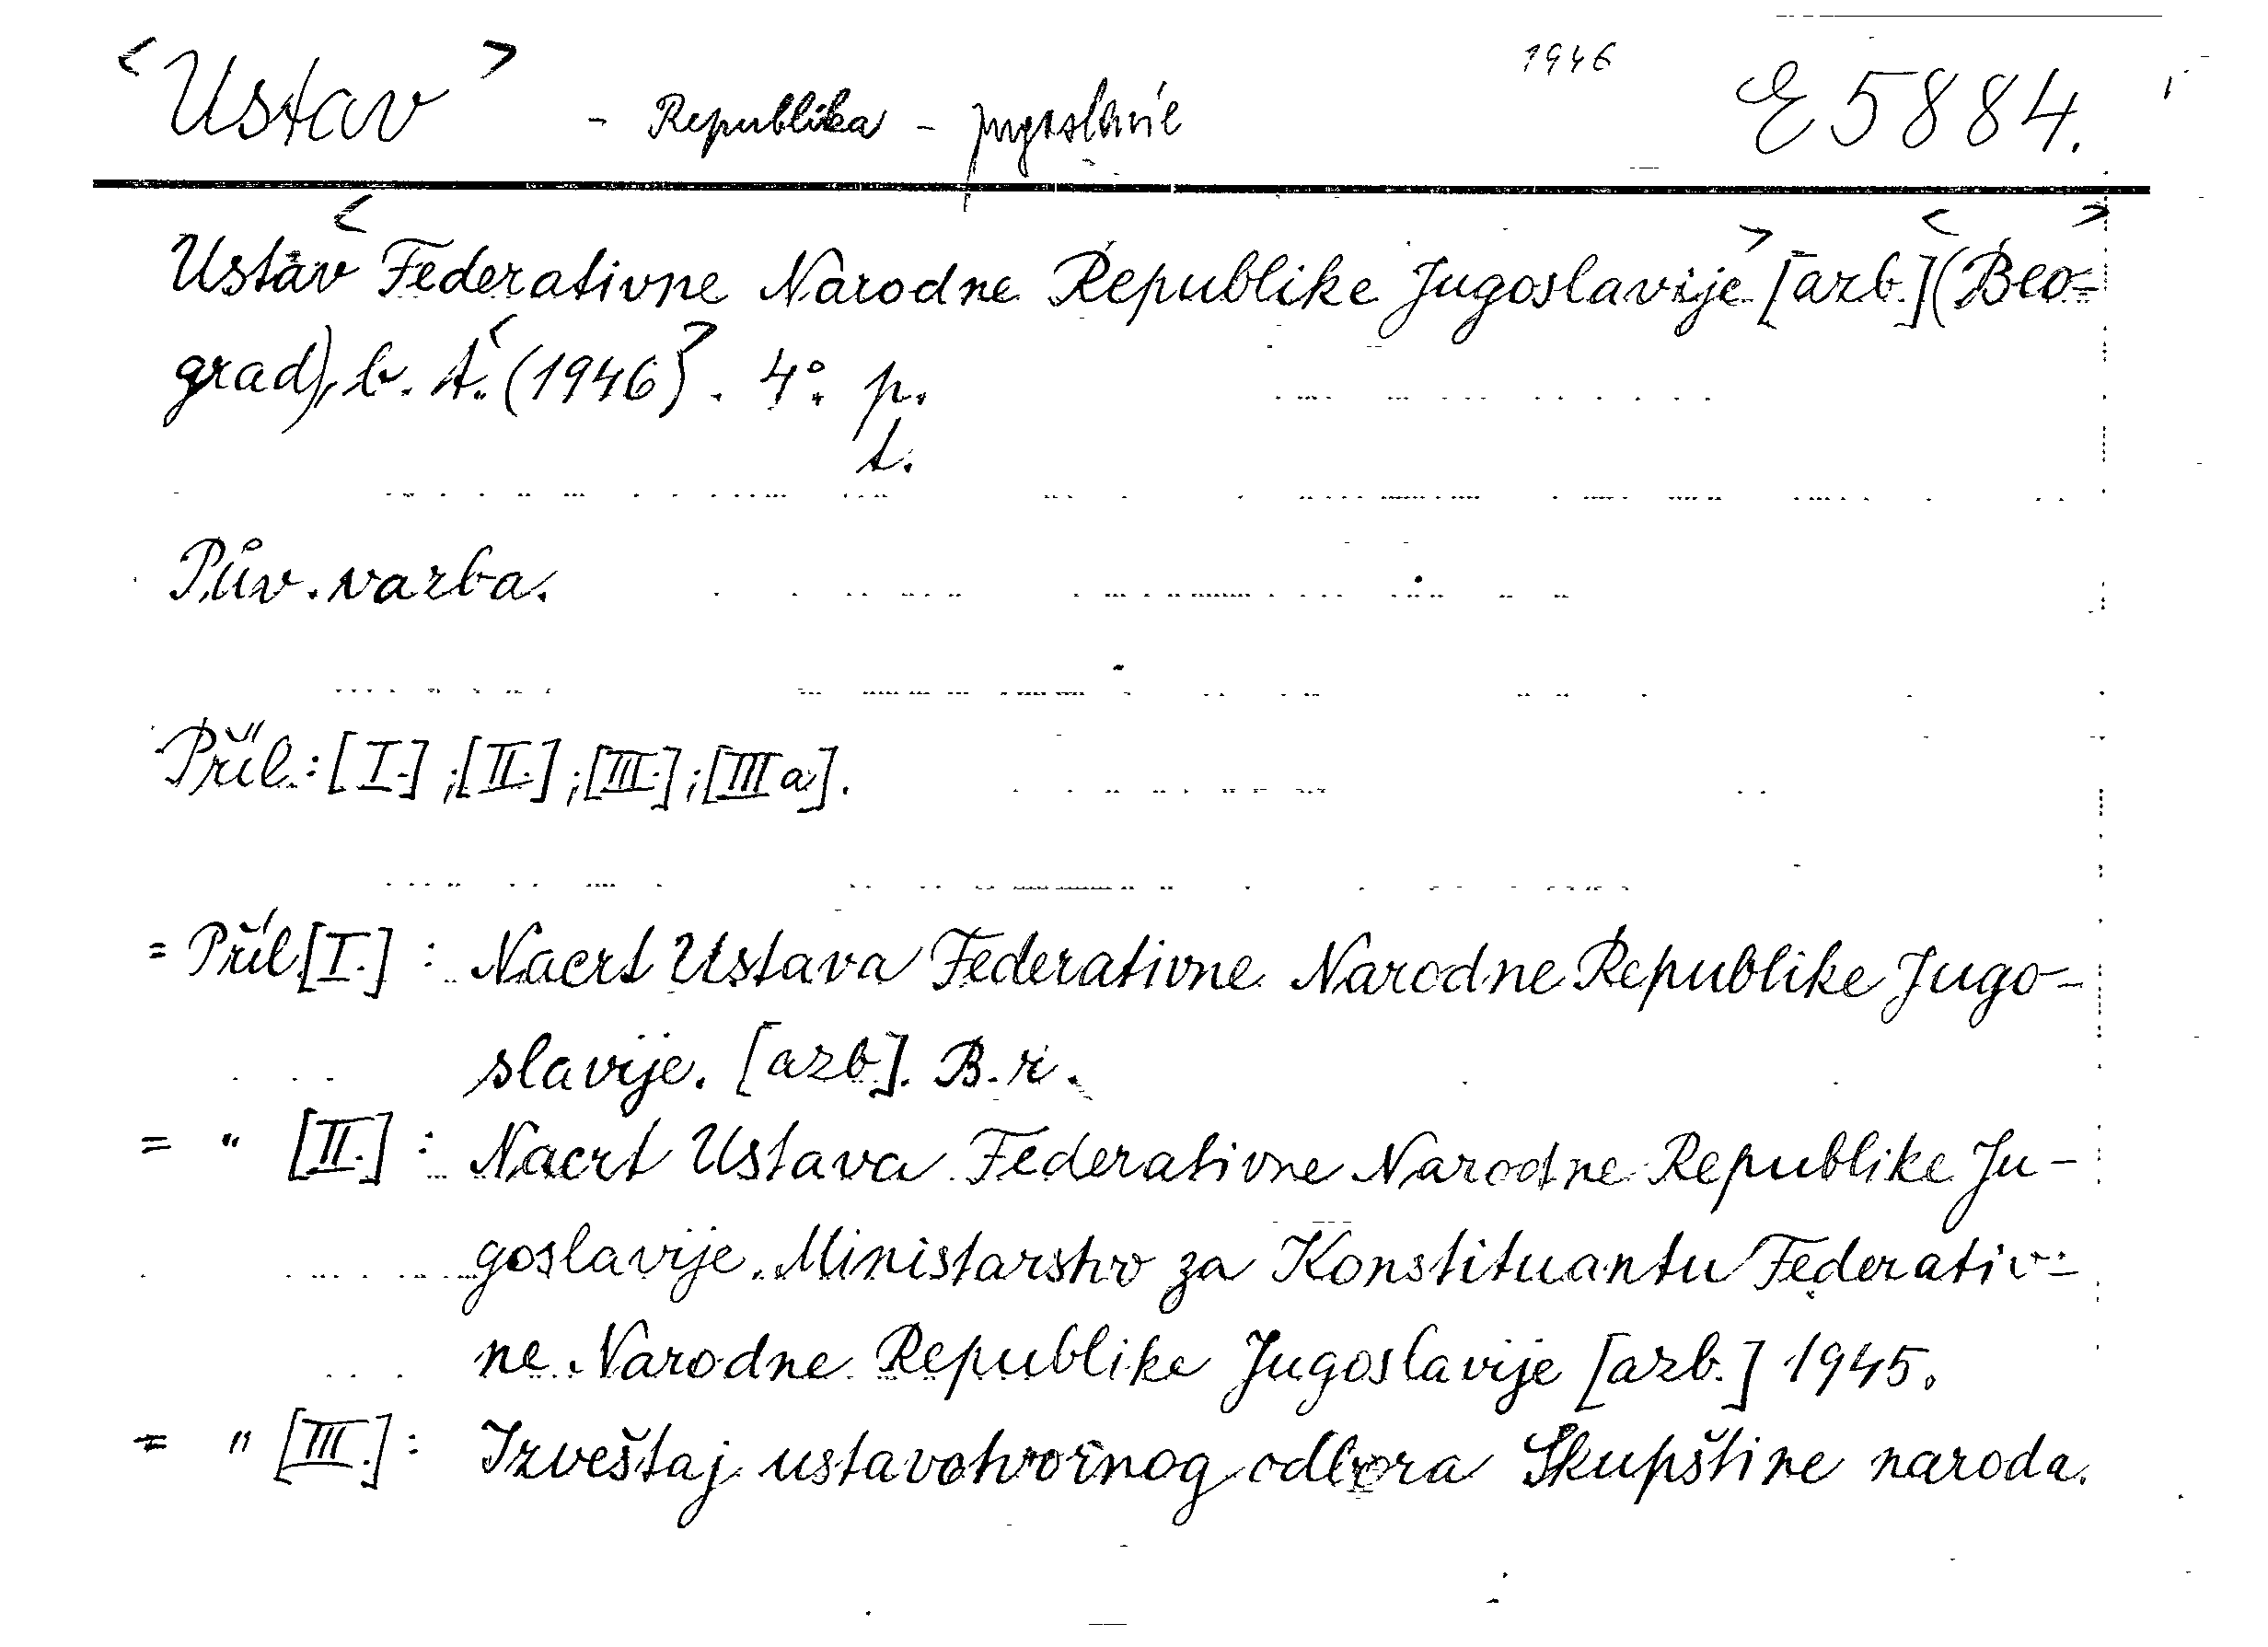 <Ustav> - Republika - jugoslávie 1946 E 5884.
Ustav <Federativne Narodne Republike Jugoslavije> [azb.] <(Beo-
grad)>, b. t. <(1946)>. 4°. p.
t.
Pův. vazba.
Příl.: [I.]; [II.]; [III.]; [IIIa].
= Příl. [I.] : Nacrt Ustava Federativne Narodne Republike Jugo-
slavije. [azb]. B. r.
= " [II.] : Nacrt Ustava Federativne Narodne Republike Ju-
goslavije. Ministarstvo za Konstituantu Federativ-
ne Narodne Republike Jugoslavije [azb.] 1945.
= " [III.] : Izveštaj ustavotvornog odbora Skupštine naroda.